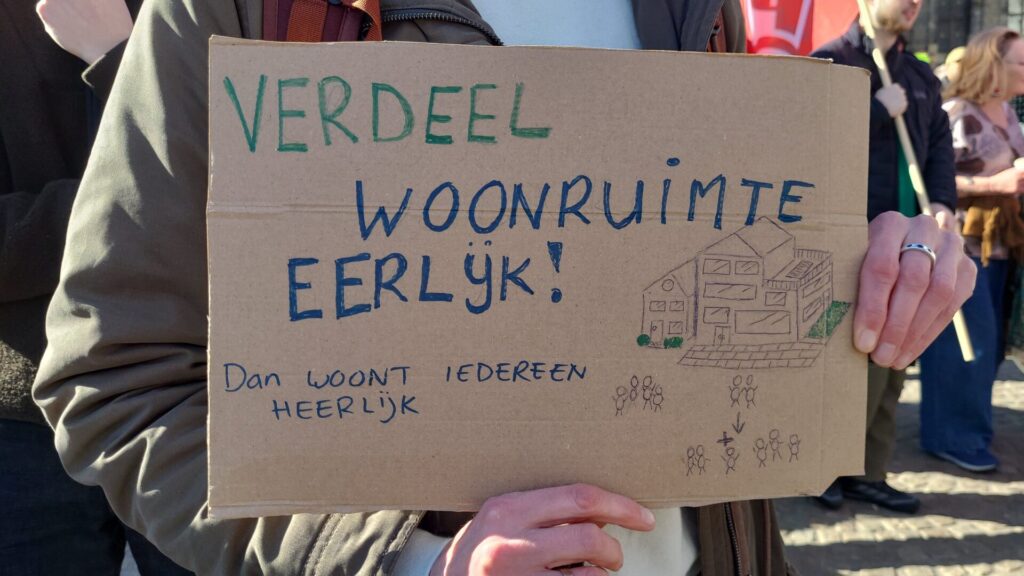 VERDEEL
WOONRUiMTE
EERLIJK!
Dan WOONT IEDEREEN
HEERLIJK